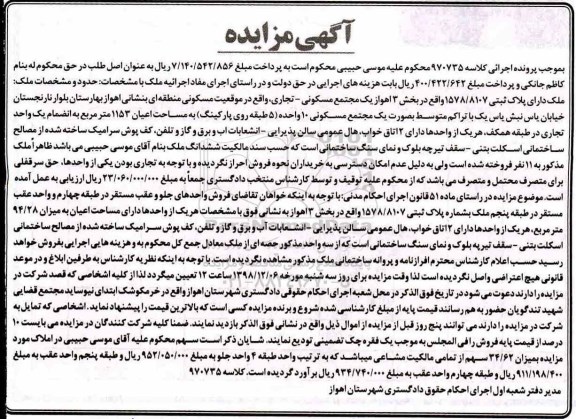 آگهی مزایده
بموجب پرونده اجرائی کلاسه ۹۷۰۷۳۵ محکوم علیه موسی حبیبی محکوم است به پرداخت مبلغ ۷/۱۴۰/۵۴۲/۸۵۶ ریال به عنوان اصل طلب در حق محکوم له بنام
کاظم جانکی و پرداخت مبلغ ۴۰۰/۴۲۲/۶۴۲ ریال بابت هزینه های اجرایی در حق دولت و در راستای اجرای مفاد اجرائیه ملک با مشخصات: حدود و مشخصات ملک:
ملک دارای پلاک ثبتی ۱۵۷۸/۸۱۰۷ واقع در بخش ۳ اهواز یک مجتمع مسکونی - تجاری، واقع در موقعیت مسکونی منطقه ای بنشانی اهواز بهارستان بلوار نارنجستان
خیابان یاس نبش یاس یک با تراکم متوسط بصورت یک مجتمع مسکونی ۱۰ واحده (۵ طبقه روی پارکینگ) به مساحت اعیان ۱۱۵۳ متر مربع به انضمام یک واحد
تجاری در طبقه همکف، هریک از واحدها دارای ۲ اتاق خواب، هال عمومی سالن پذیرایی - انشعابات اب و برق و گاز و تلفن، کف پوش سرامیک ساخته شده از مصالح
ساختمانی اسکلت بتنی - سقف تیرچه بلوک و نمای سنگ ساختمانی است که حسب سند مالکیت ششدانگ ملک بنام آقای موسی حبیبی می باشد ظاهراً ملک
مذکور به ۱۱ نفر فروخته شده است ولی به دلیل عدم امکان دسترسی به خریداران نحوه فروش احراز نگردیده و با توجه به تجاری بودن یکی از واحدها، حق سرقفلی
برای متصرف محتمل و متصرف می باشد که از محکوم علیه توقیف و توسط کارشناس منتخب دادگستری جمعاً به مبلغ ۲۳/۰۶۰/۰۰۰/۰۰۰ ریال ارزیابی به عمل آمده
است. موضوع مزایده در راستای ماده ۵۱ قانون اجرای احکام مدنی: با توجه به اینکه خواهان تقاضای فروش واحدهای جلو و عقب مستقر در طبقه چهارم و واحد عقب
مستقر در طبقه پنجم ملک بشماره پلاک ثبتی ۱۵۷۸/۸۱۰۷ واقع در بخش ۳ اهواز به نشانی فوق با مشخصات هریک از واحدها دارای مساحت اعیان به میزان ۹۴/۲۸
متر مربع، هریک از واحدها دارای ۲ اتاق خواب، هال عمومی سالن پذیرایی - انشعابات آب و برق و گاز و تلفن، کف پوش سرامیک ساخته شده از مصالح ساختمانی
اسکلت بتنی - سقف تیرچه بلوک و نمای سنگ ساختمانی است که از سه واحد مذکور حصه ای از ملک معادل جمع کل محکوم به و هزینه هایی اجرایی بفروش خواهد
رسید حسب اعلام کارشناس محترم افراز نامه و پروانه ساختمانی ملک مذکور مشاهده نگردیده است. با توجه به اینکه نظریه کارشناس به طرفین ابلاغ و در موعد
قانونی هیچ اعتراضی واصل نگردیده است لذا وقت مزایده برای روز سه شنبه مورخه ۱۳۹۸/۱۲/۰۶ ساعت ۱۲ تعیین میگردد لذا از کلیه اشخاصی که قصد شرکت در
مزایده را دارند دعوت می شود در تاریخ فوق الذکر در محل شعبه اجرای احکام حقوقی دادگستری شهرستان اهواز واقع در خرمکوشک ابتدای نیوساید مجتمع قضایی
شهید تندگویان حضور به هم رسانند قیمت پایه از مبلغ کارشناسی شده شروع و برنده مزایده کسی است که بالاترین قیمت را پیشنهاد نماید. اشخاصی که تمایل به
شرکت در مزایده را دارند می توانند پنج روز قبل از مزایده از اموال ذیل واقع در نشانی فوق الذکر بازدید نمایند. ضمنا کلیه شرکت کنندگان در مزایده می بایست ۱۰
درصد از قیمت پایه فروش را فی المجلس به موجب یک فقره چک تضمینی تودیع نمایند. شایان ذکر است سهم محکوم علیه آقای موسی حبیبی در املاک مورد
مزایده بمیزان ۳۴/۶۲ سهم از تمامی مالکیت مشاعی میباشد که به ترتیب واحد طبقه ۴ واحد جلو به مبلغ ۹۵۲/۰۵۰/۰۰۰ ریال و طبقه پنجم واحد عقب به مبلغ
۹۱۱/۱۹۸/۴۰۰ ریال و طبقه چهارم واحد عقب به مبلغ ۹۳۴/۷۴۰/۰۰۰ ریال برآورد گردیده است. کلاسه ۹۷۰۷۳۵
مدیر دفتر شعبه اول اجرای احکام حقوق دادگستری شهرستان اهواز